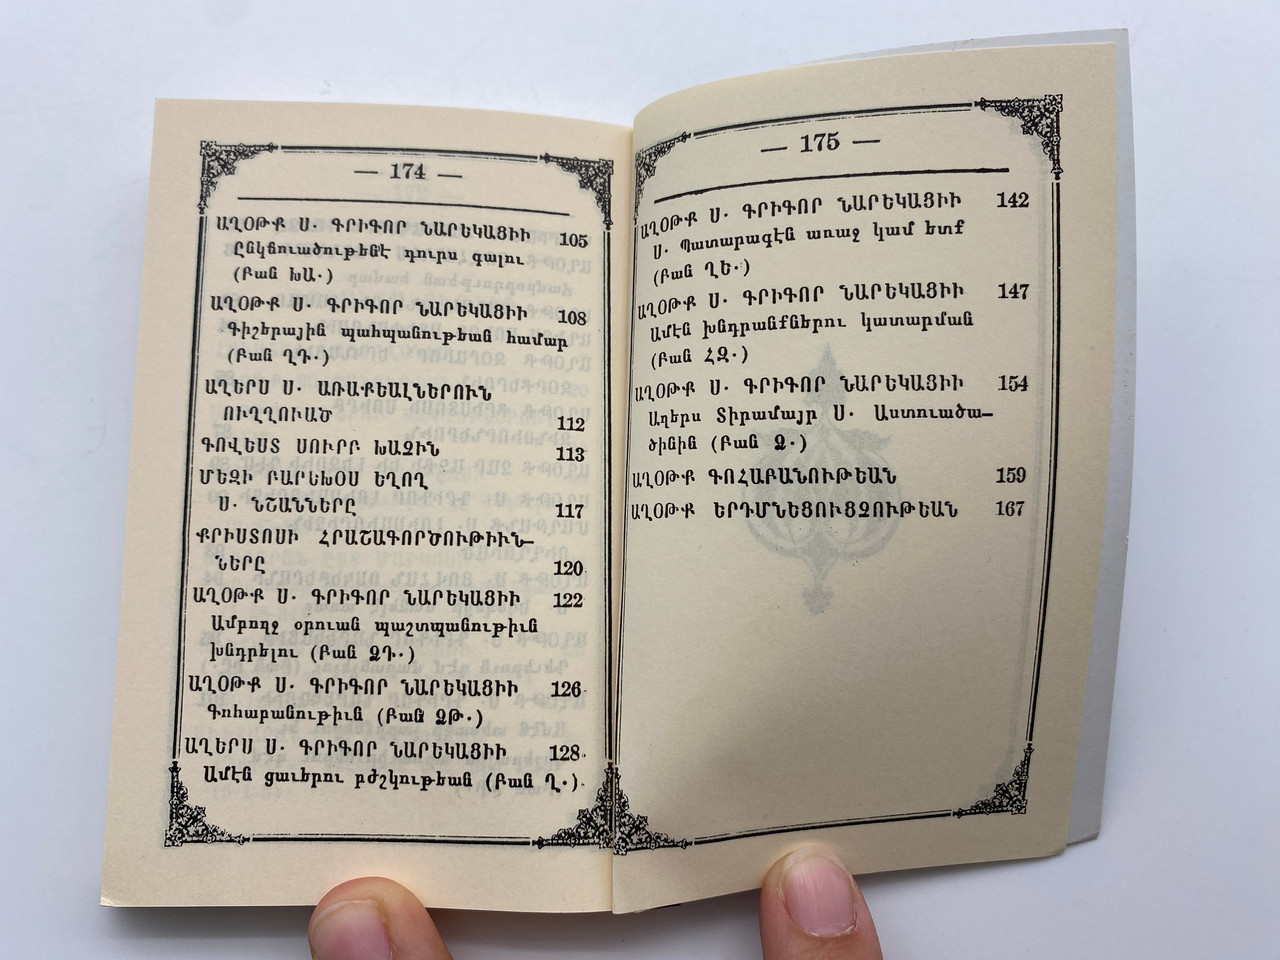 — 174 —
ԱՂՕԹՔ Ս. ԳՐԻԳՈՐ ՆԱՐԵԿԱՑԻԻ 105
Ընկճուածութենէ դուրս գալու
(Բան ԽԱ.)
ԱՂՕԹՔ Ս. ԳՐԻԳՈՐ ՆԱՐԵԿԱՑԻԻ 108
Գիշերային պահպանութեան համար
(Բան ՂԴ.)
ԱՂԵՐՍ Ս. ԱՌԱՔԵԱԼՆԵՐՈՒՆ
ՈՒՂՂՈՒԱԾ 112
ԳՈՎԵՍՏ ՍՈՒՐԲ ԽԱՉԻՆ 113
ՄԵԶԻ ԲԱՐԵԽՕՍ ԵՂՈՂ
Ս. ՆՇԱՆՆԵՐԸ 117
ՔՐԻՍՏՈՍԻ ՀՐԱՇԱԳՈՐԾՈՒԹԻՒՆ-
ՆԵՐԸ 120
ԱՂՕԹՔ Ս. ԳՐԻԳՈՐ ՆԱՐԵԿԱՑԻԻ 122
Ամբողջ օրուան պաշտպանութիւն
խնդրելու (Բան ՁԴ.)
ԱՂՕԹՔ Ս. ԳՐԻԳՈՐ ՆԱՐԵԿԱՑԻԻ 126
Գոհարանութիւն (Բան ՁԹ.)
ԱՂԵՐՍ Ս. ԳՐԻԳՈՐ ՆԱՐԵԿԱՑԻԻ 128
Ամէն ցաւերու բժշկութեան (Բան Ղ.)
— 175 —
ԱՂՕԹՔ Ս. ԳՐԻԳՈՐ ՆԱՐԵԿԱՑԻԻ 142
Ս. Պատարագէն առաջ կամ ետք
(Բան ՂԵ.)
ԱՂՕԹՔ Ս. ԳՐԻԳՈՐ ՆԱՐԵԿԱՑԻԻ 147
Ամէն խնդրանքներու կատարման
(Բան ՀԶ.)
ԱՂՕԹՔ Ս. ԳՐԻԳՈՐ ՆԱՐԵԿԱՑԻԻ 154
Աղերս Տիրամայր Ս. Աստուածա-
ծինին (Բան Ձ.)
ԱՂՕԹՔ ԳՈՀԱԲԱՆՈՒԹԵԱՆ 159
ԱՂՕԹՔ ԵՐԴՄՆԵՑՈՒՑՉՈՒԹԵԱՆ 167